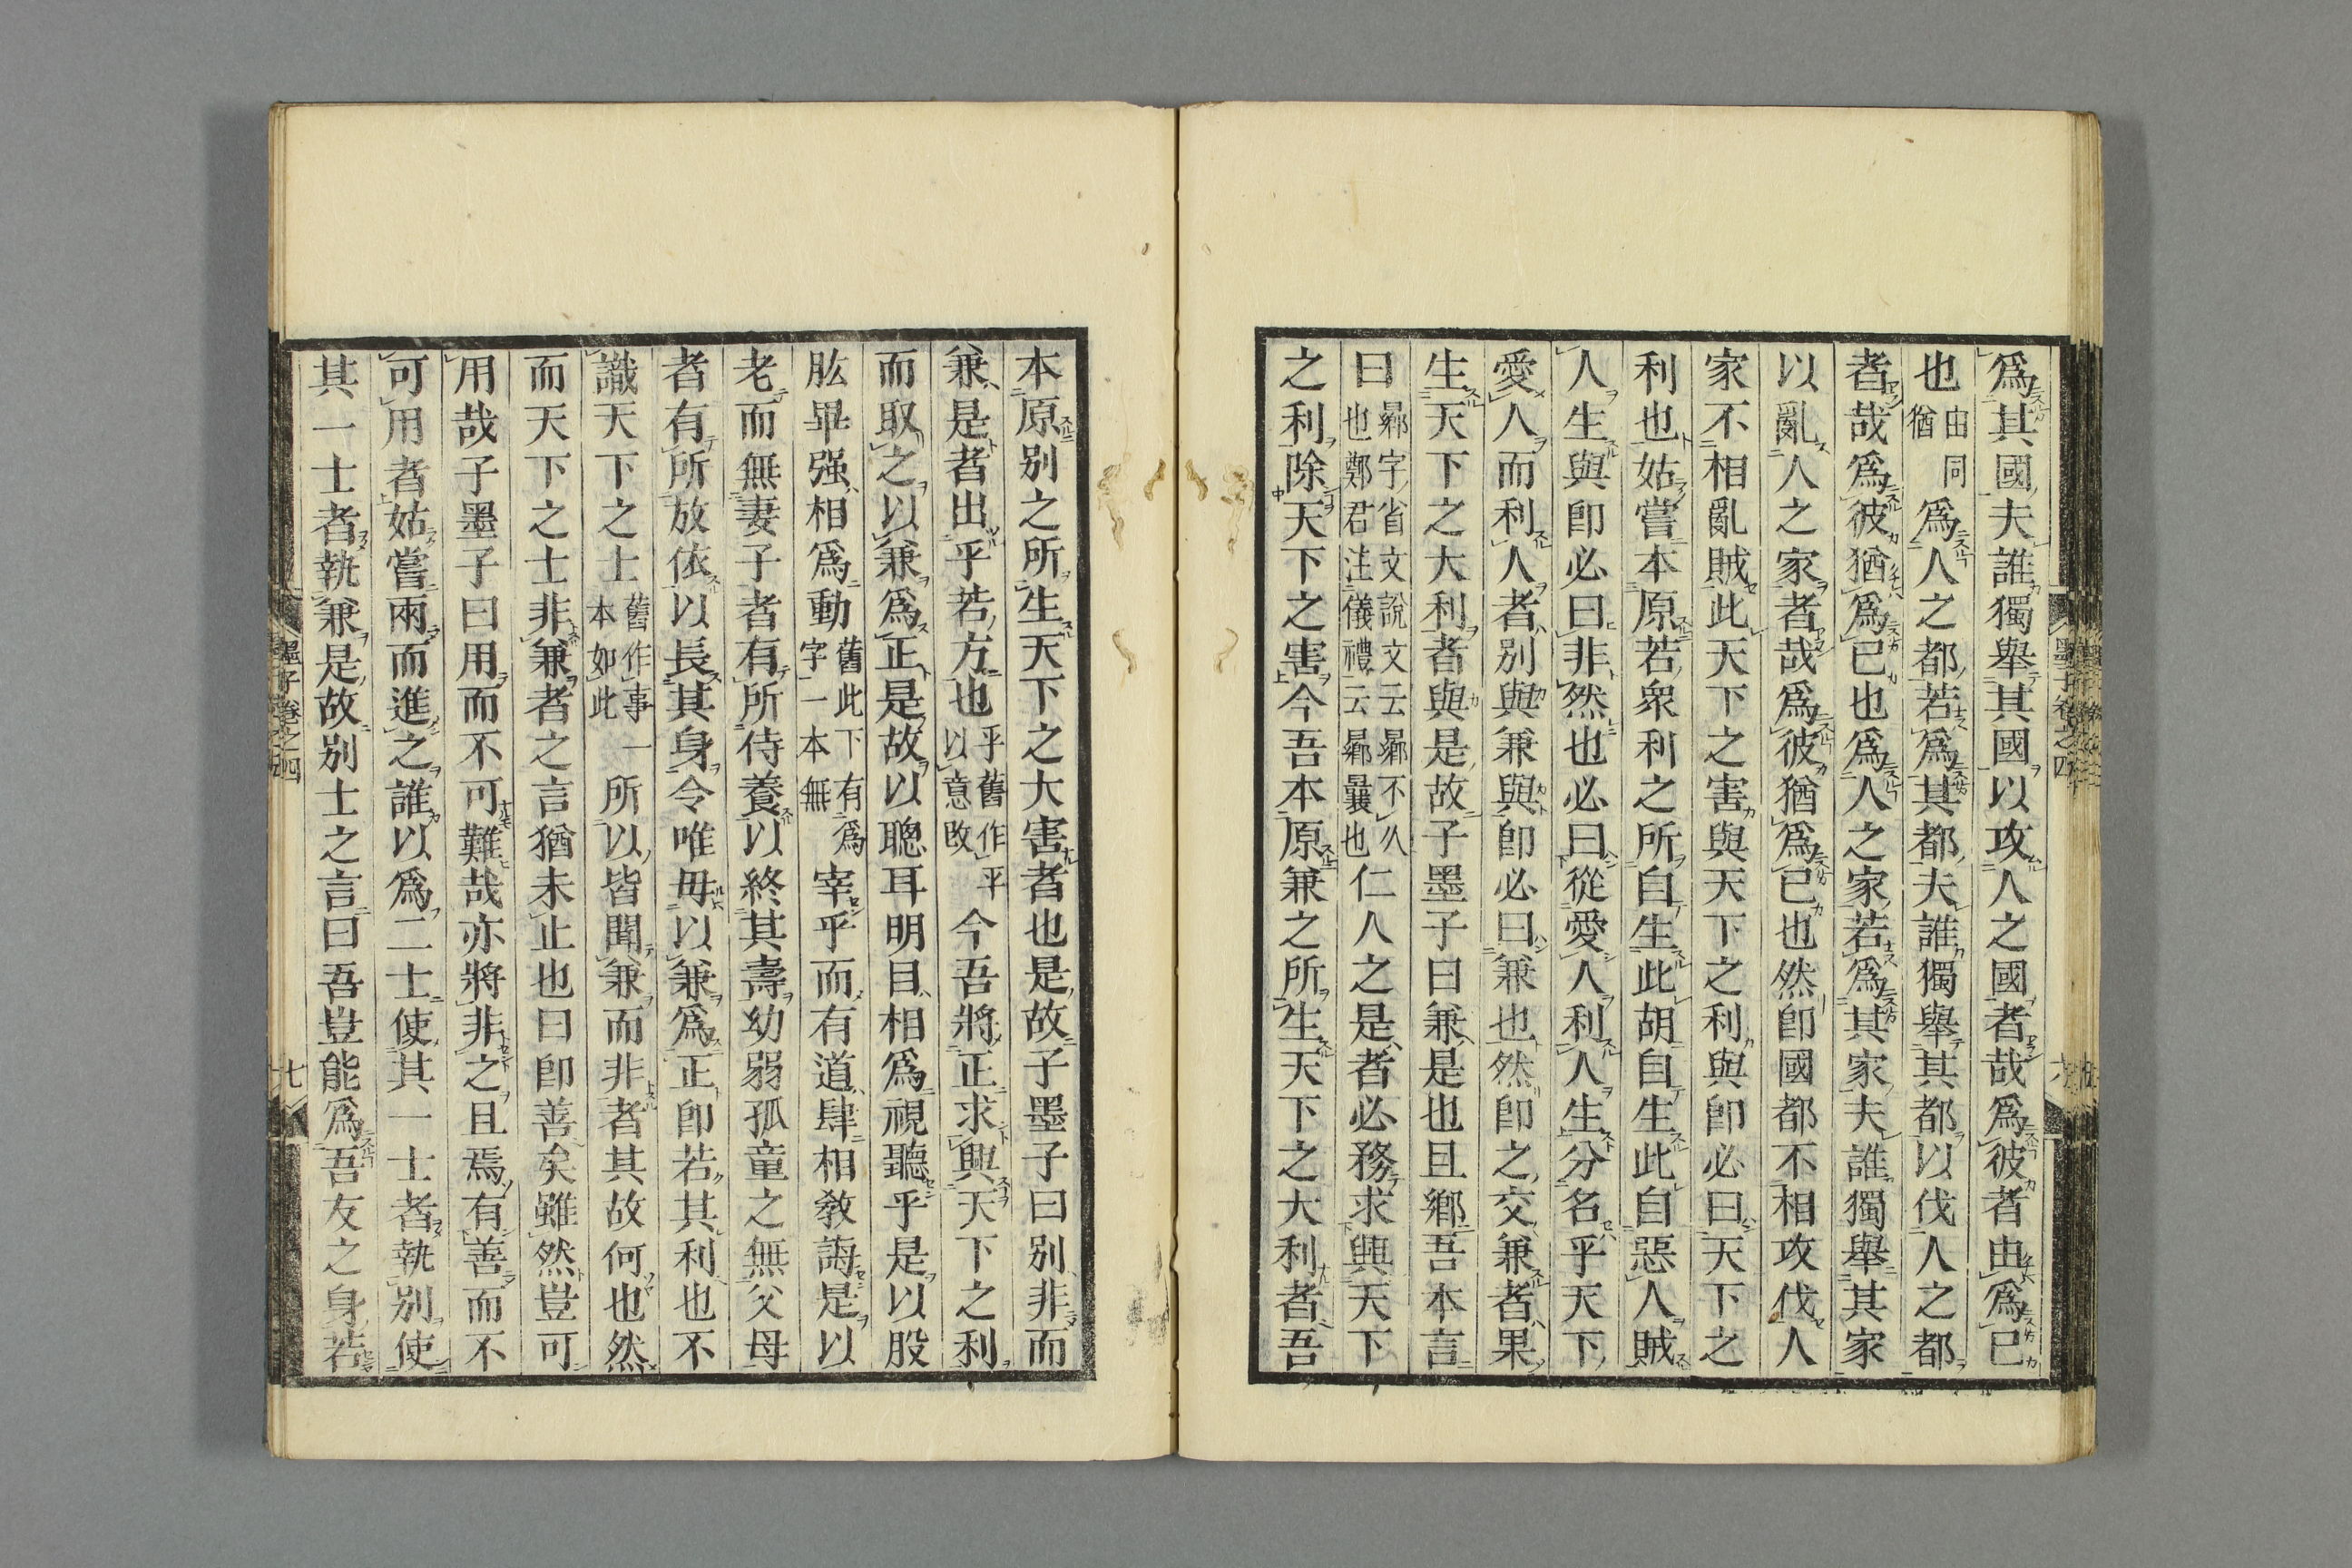 爲其國夫誰獨擧其國以攻人之國者哉爲彼者由爲己
也由同猶爲人之都若爲其都夫誰獨擧其都以伐人之都
者哉爲彼猶爲己也爲人之家若爲其家夫誰獨擧其家
以亂人之家者哉爲彼猶爲己也然卽國都不相攻伐人
家不相亂賊此天下之害與天下之利與卽必曰天下之
利也姑嘗本原若衆利之所自生此胡自生此自惡人賊
人生與卽必曰非然也必曰從愛人利人生分名乎天下
愛人而利人者別與兼與卽必曰兼也然卽之交兼者果
生天下之大利者與是故子墨子曰兼是也且鄕吾本言
曰鄕字省文說文云曏不久也鄭君注儀禮云曏曩也仁人之是者必務求興天下
之利除天下之害今吾本原兼之所生天下之大利者吾
墨子卷之四
六
本原別之所生天下之大害者也是故子墨子曰別非而
兼是者出乎若方也乎舊作平以意改今吾將正求興天下之利
而取之以兼爲正是故以聰耳明目相爲視聽乎是以股
肱畢强相爲動舊此下有爲字一本無宰乎而有道肆相敎誨是以
老而無妻子者有所侍養以終其壽幼弱孤童之無父母
者有所放依以長其身今唯毋以兼爲正卽若其利也不
識天下之士舊作事一本如此所以皆聞兼而非者其故何也然
而天下之士非兼者之言猶未止也曰卽善矣雖然豈可
用哉子墨子曰用而不可難哉亦將非之且焉有善而不
可用者姑嘗兩而進之誰以爲二士使其一士者執別使
其一士者執兼是故別士之言曰吾豈能爲吾友之身若
墨子卷之四
七